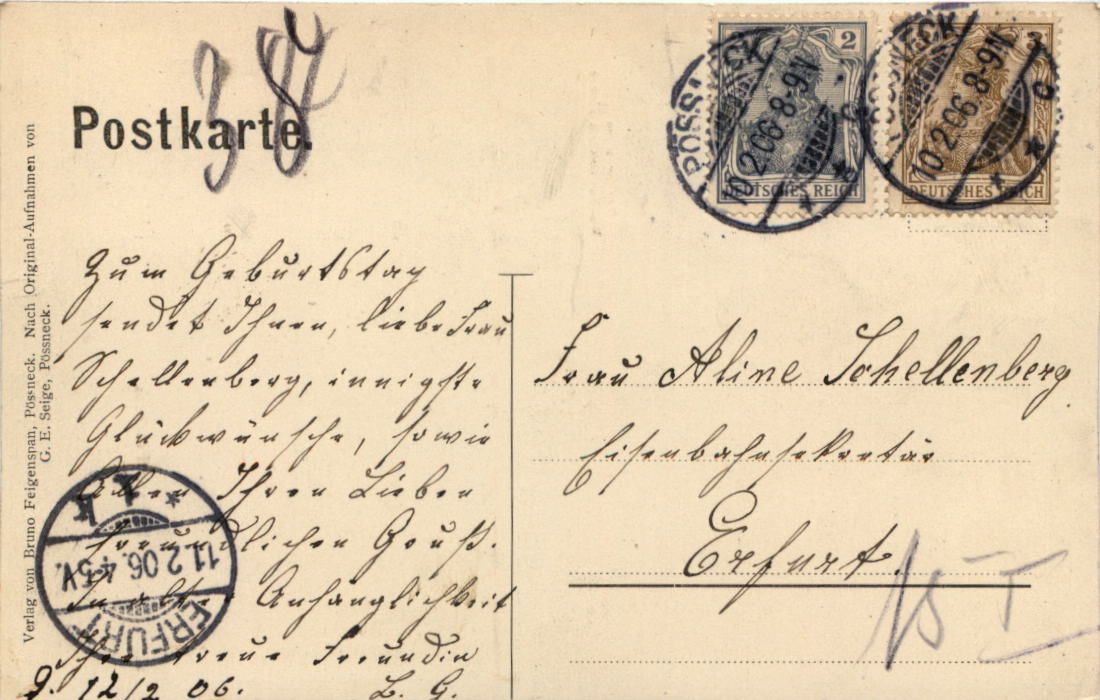 Postkarte.
38
PÖSSNECK
10.2.06 8-9N
c
2
DEUTSCHES REICH
PÖSSNECK
10.2.06 8-9N
c
3
DEUTSCHES REICH
Verlag von Bruno Feigenspan, Pösneck. Nach Original-Aufnahmen von
G. E. Seige, Pössneck.
Zum Geburtstag
sendet Ihnen, liebe Frau
Schellenberg, innigste
Glückwünsche, sowie
Allen Ihren Lieben
freundlichen Gruß.
In alter Anhänglichkeit
Ihre treue Freundin
d. 12/2 06. L. G.
Frau Aline Schellenberg
Eisenbahnsekretär
Erfurt.
15 I
ERFURT
11.2.06. 4-5V.